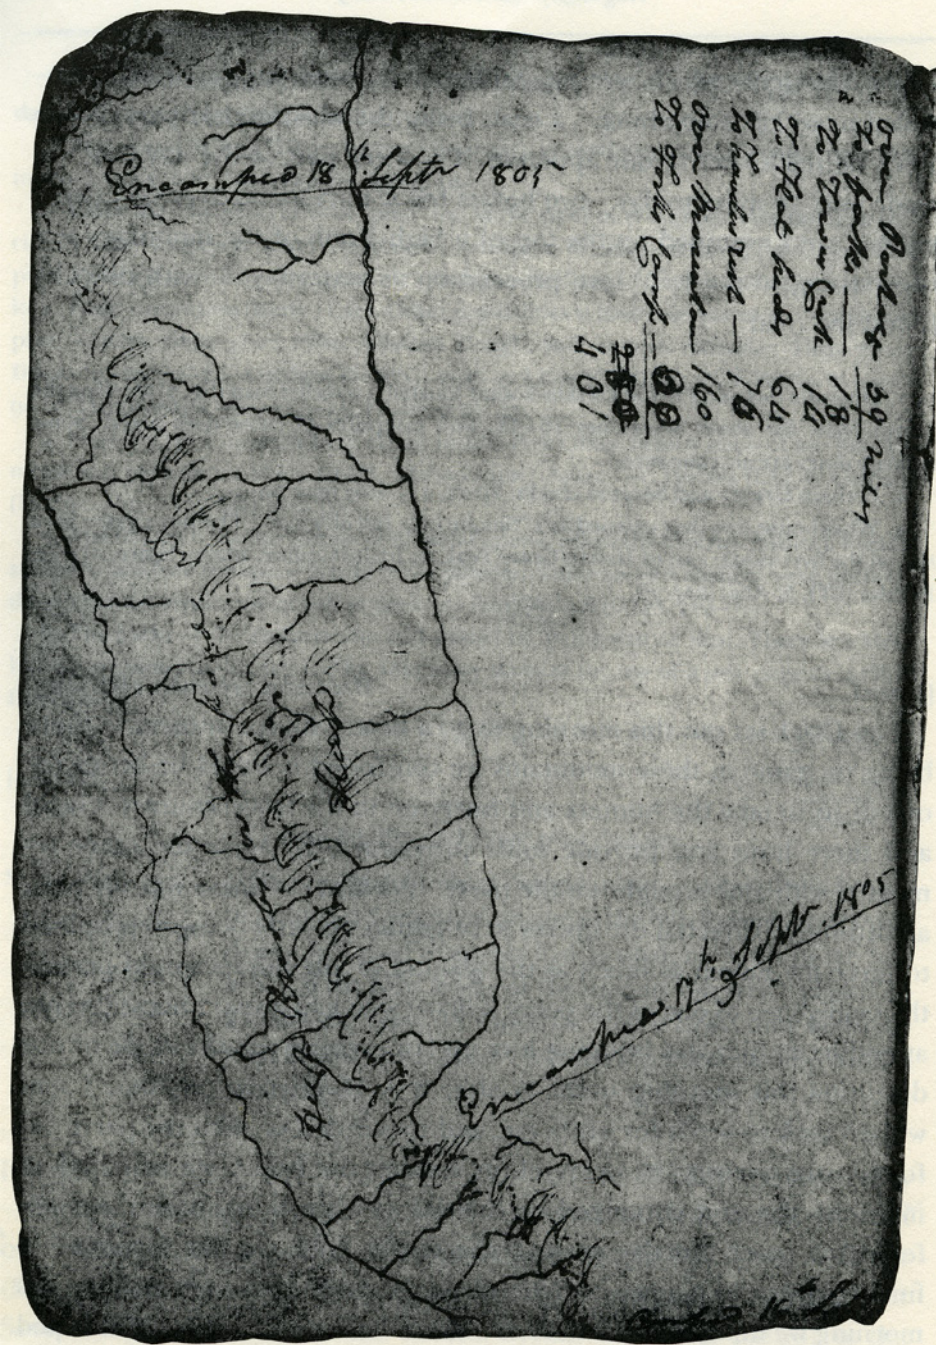 Encamped 18th Septr 1805
over Portage 39 miles
To forks — 18
To Tower Creek 14
To Flat heads 64
To Travelers rest — 76
over Mountain 160
To Forks Camp —
401
Encamped 17th Septr. 1805
16th Sept